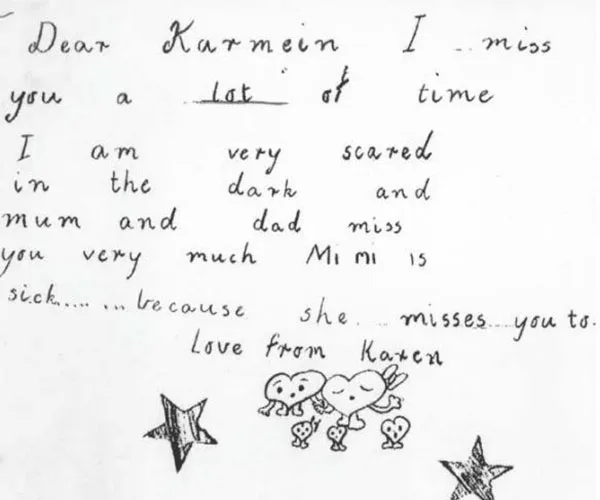 Dear Karmein I miss
you a lot of time
I am very scared
in the dark and
mum and dad miss
you very much Mimi is
sick....... because she... misses...you to.
Love from Karen